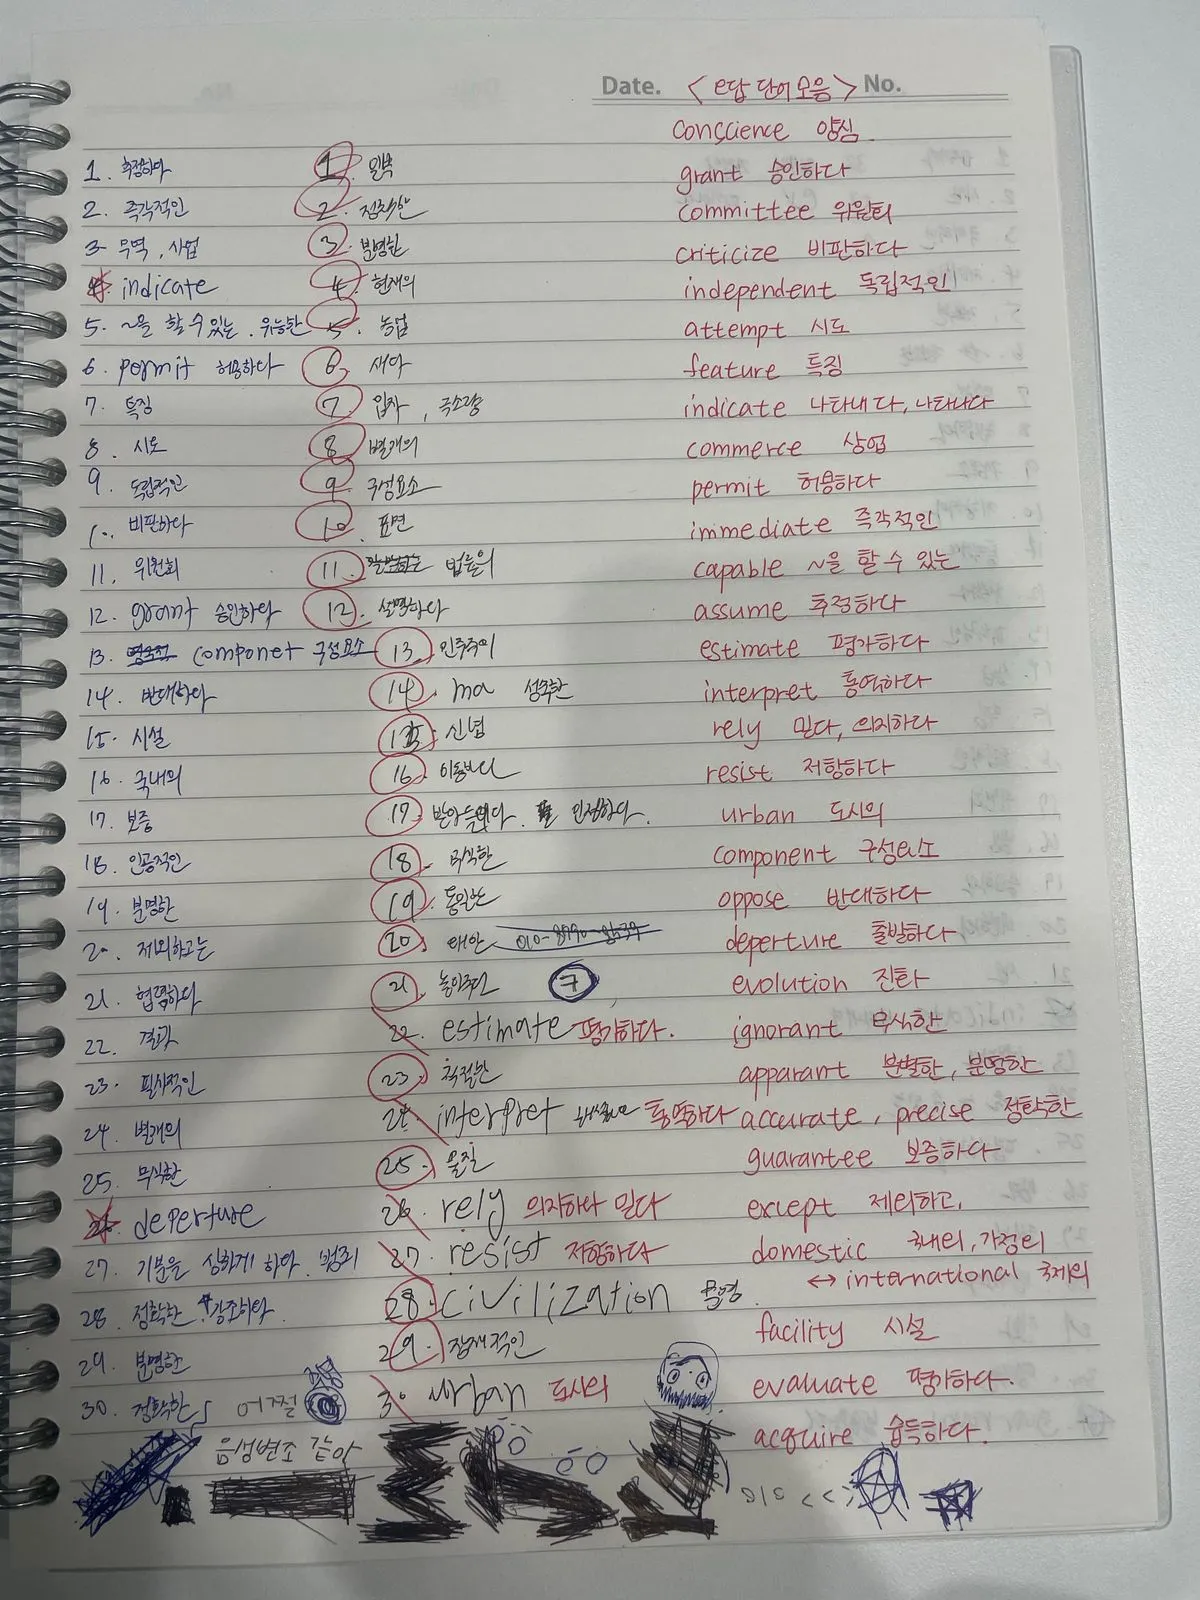 Date. <e답 단어 모음> No.
conscience 양심
1. 추정하다
2. 즉각적인
3. 무역, 사업
indicate
5. ~을 할 수 있는. 유능한
6. permit 허용하다
7. 특징
8. 시도
9. 독립적인
10. 비판하다
11. 위원회
12. grant 승인하다
13. componet 구성요소
14. 반대하다
15. 시설
16. 국내의
17. 보증
18. 인공적인
19. 분명한
20. 제외하고는
21. 협력하다
22. 결과
23. 필사적인
24. 별개의
25. 무식한
26. deperture
27. 기분을 상하게 하다. 범죄
28. 정확한. 강조하다.
29. 분명한
30. 정확한 어쩔
음성변조 같아
1. 일부
2.
3. 분명한
4. 현재의
5. 농업
6.
7. 입자, 극소량
8. 별개의
9. 구성요소
10. 표면
11. 법률의
12. 설명하다
13. 민주주의
14. ma 성숙한
15. 신념
16. 이동
17. 받아들이다. 인정하다.
18. 무식한
19. 동일한
20. 대안
21. 7
22. estimate 평가하다.
23. 적절한
24. interpret 통역하다
25. 물질
26. rely 의지하다 믿다
27. resist 저항하다
28. civilization 문명
29. 잠재적인
30. urban 도시의
grant 승인하다
committee 위원회
criticize 비판하다
independent 독립적인
attempt 시도
feature 특징
indicate 나타내다, 나타나다
commerce 상업
permit 허용하다
immediate 즉각적인
capable ~을 할 수 있는
assume 추정하다
estimate 평가하다
interpret 통역하다
rely 믿다, 의지하다
resist 저항하다
urban 도시의
component 구성요소
oppose 반대하다
deperture 출발하다
evolution 진화
ignorant 무식한
apparant 분별한, 분명한
accurate, precise 정확한
guarantee 보증하다
except 제외하고,
domestic 국내의, 가정의
↔ international 국제의
facility 시설
evaluate 평가하다.
acquire 습득하다.